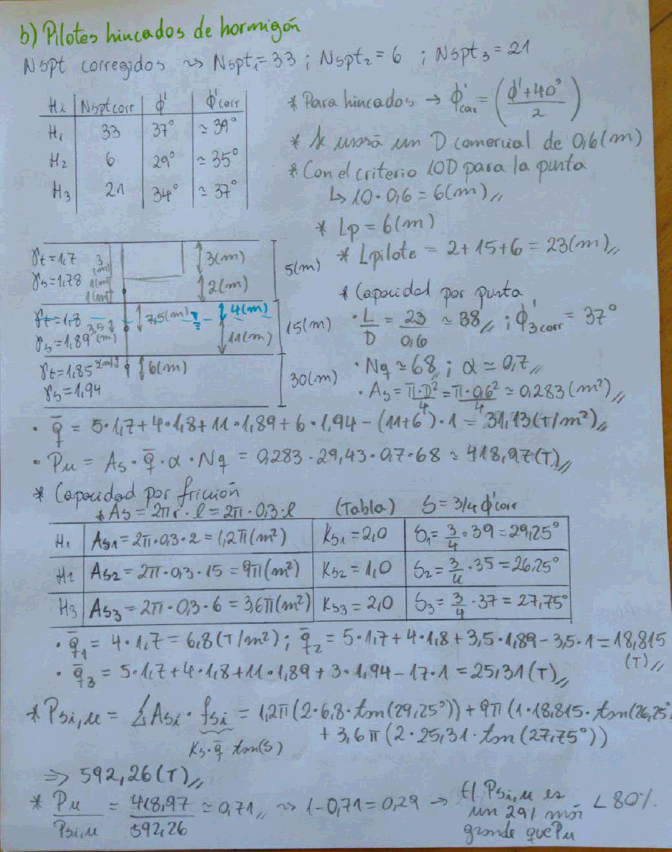 b) Pilotes hincados de hormigón
Nspt corregidos ⇝ Nspt₁=33 ; Nspt₂=6 ; Nspt₃=21
Hi | Nsptcorr | ϕ' | ϕ'corr
H₁ | 33 | 37° | ≃39°
H₂ | 6 | 29° | ≃35°
H₃ | 21 | 34° | ≃37°
* Para hincados → ϕ'car = (ϕ'+40°/2)
* Se usará un D comercial de 0,6(m)
* Con el criterio 10D para la punta
↳ 10·0,6=6(m)
* Lp=6(m)
* Lpilote = 2+15+6 = 23(m)
γt=1,7
γs=1,78
3(m)
2(m)
5(m)
γt=1,8
γs=1,89
3,5(m)
7,5(m)
4(m)
11(m)
15(m)
γt=1,85
γs=1,94
6(m)
30(m)
* Capacidad por punta
· L/D = 23/0,6 ≃ 38 ; ϕ'3corr = 37°
· Nq ≃ 68 ; α ≃ 0,7
· As = π·D²/4 = π·0,6²/4 ≃ 0,283(m²)
· q̄ = 5·1,7+4·1,8+11·1,89+6·1,94-(11+6)·1 = 31,13(T/m²)
· Pu = As·q̄·α·Nq = 0,283·29,43·0,7·68 ≃ 418,97(T)
* Capacidad por fricción
* As = 2πr·l = 2π·0,3·l (Tabla) S = 3/4 ϕ'corr
H₁ | As₁ = 2π·0,3·2 = 1,2π(m²) | Ks₁=2,0 | S₁ = 3/4·39 = 29,25°
H₂ | As₂ = 2π·0,3·15 = 9π(m²) | Ks₂=1,0 | S₂ = 3/4·35 = 26,25°
H₃ | As₃ = 2π·0,3·6 = 3,6π(m²) | Ks₃=2,0 | S₃ = 3/4·37 = 27,75°
· q̄₁ = 4·1,7 = 6,8(T/m²) ; q̄₂ = 5·1,7+4·1,8+3,5·1,89-3,5·1 = 18,815
(T)
· q̄₃ = 5·1,7+4·1,8+11·1,89+3·1,94-17·1 = 25,31(T)
* Psi,u = ΣAsi·fsi = 1,2π(2·6,8·tan(29,25°))+9π(1·18,815·tan(26,25°
Ks·q̄·tan(S)
+3,6π(2·25,31·tan(27,75°))
⇒ 592,26(T)
* Pu/Psi,u = 418,97/592,26 ≃ 0,71 ⇝ 1-0,71=0,29 → El Psi,u es
un 29% más
grande que Pu
<80%